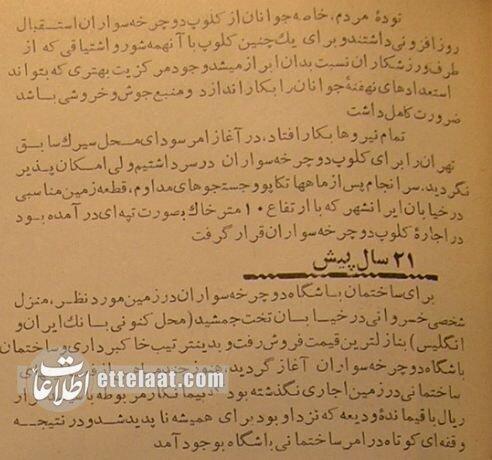 تودهٔ مردم، خاصه جوانان از کلوپ دوچرخه سواران استقبال
روزافزونی داشتند و برای یک چنین کلوپ با آنهمه شور و اشتیاقی که از
طرف ورزشکاران نسبت بدان ابراز میشد وجود مرکزیت بهتری که بتواند
استعدادهای نهفتهٔ جوانان را بکار اندازد و منبع جوش و خروشی باشد
ضرورت کامل داشت
تمام نیروها بکار افتاد، در آغاز امر سودای محل سیرک سابق
تهران را برای کلوپ دوچرخه سواران در سر داشتیم ولی امکان پذیر
نگردید. سرانجام پس از ماهها تکاپو و جستجوهای مداوم، قطعه زمین مناسبی
در خیابان ایرانشهر که با ارتفاع ۱۰ متر خاک بصورت تپه ای درآمده بود
در اجارهٔ کلوپ دوچرخه سواران قرار گرفت
۲۱ سال پیش
برای ساختمان باشگاه دوچرخه سواران در زمین مورد نظر، منزل
شخصی خسروانی در خیابان تخت جمشید (محل کنونی بانک ایران و
انگلیس) بنازلترین قیمت فروش رفت و بدینترتیب خاکبرداری و ساختمان
باشگاه دوچرخه سواران آغاز گردید، هنوز
ساختمانی در زمین اجاری نگذشته بود پیمانکار مربوطه با
ریال باقیماندهٔ ودیعه که نزد او بود برای همیشه ناپدید شد و در نتیجه
وقفه ای کوتاه در امر ساختمانی باشگاه بوجود آمد
اطلاعات ettelaat.com